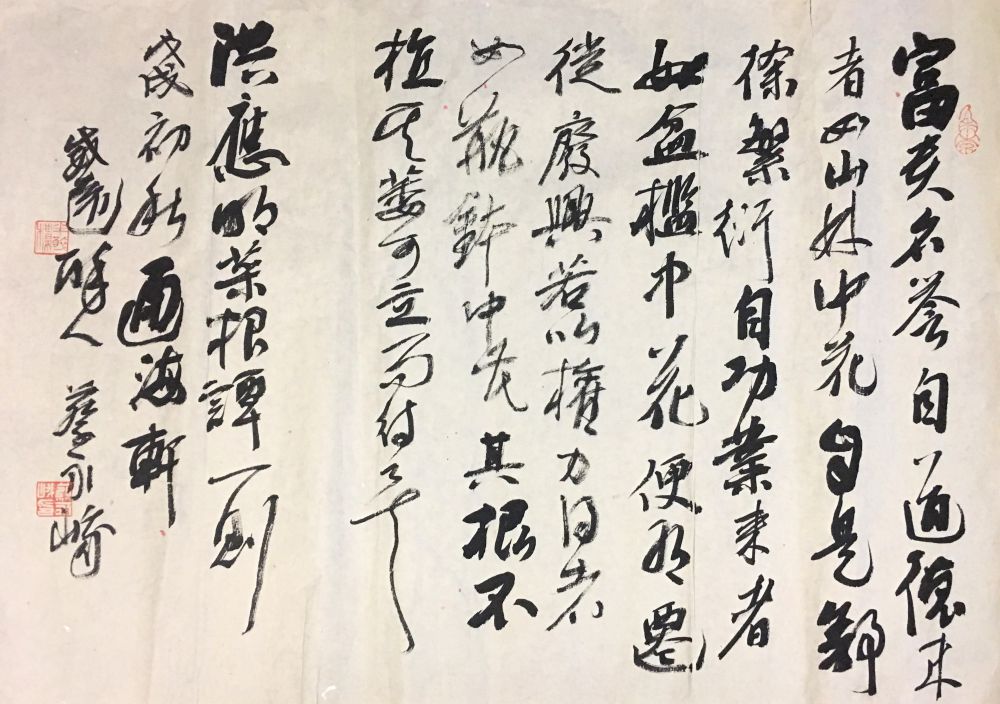 富貴名譽自道德來
者如山林中花自是舒
徐繁衍自功業來者
如盆檻中花便有遷
徙廢興若以權力得者
如瓶鉢中花其根不
植其萎可立而待矣
洪應明菜根譚一則
戊戌初秋海軒
人蔡永